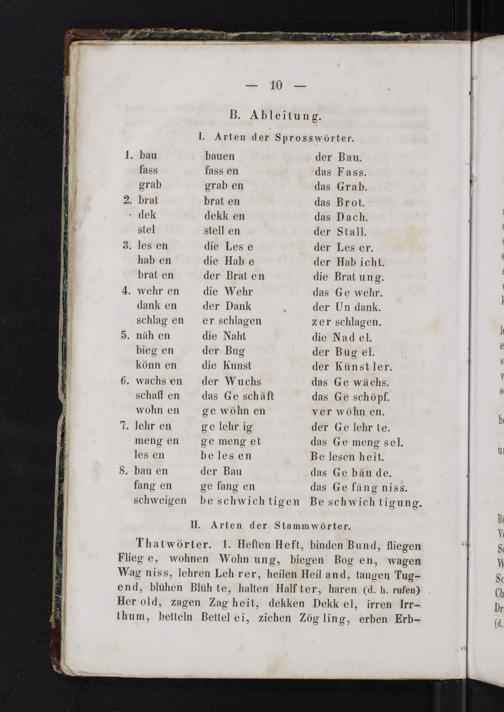 — 10 —
B. Ableitung.
I. Arten der Sprosswörter.
1. bau bauen der Bau.
fass fass en das Fass.
grab grab en das Grab.
2. brat brat en das Brot.
dek dekk en das Dach.
stel stell en der Stall.
3. les en die Les e der Les er.
hab en die Hab e der Hab icht.
brat en der Brat en die Brat ung.
4. wehr en die Wehr das Ge wehr.
dank en der Dank der Un dank.
schlag en er schlagen zer schlagen.
5. näh en die Naht die Nad el.
bieg en der Bug der Büg el.
könn en die Kunst der Künst ler.
6. wachs en der Wuchs das Ge wächs.
schaff en das Ge schäft das Ge schöpf.
wohn en ge wöhn en ver wöhn en.
7. lehr en ge lehr ig der Ge lehr te.
meng en ge meng et das Ge meng sel.
les en be les en Be lesen heit.
8. bau en der Bau das Ge bäu de.
fang en ge fang en das Ge fäng niss.
schweigen be schwich tigen Be schwich tigung.
II. Arten der Stammwörter.
Thatwörter. 1. Heften Heft, binden Bund, fliegen
Flieg e, wohnen Wohn ung, biegen Bog en, wagen
Wag niss, lehren Leh rer, heilen Heil and, taugen Tug-
end, blühen Blüh te, halten Half ter, haren (d. h. rufen)
Her old, zagen Zag heit, dekken Dekk el, irren Irr-
thum, betteln Bettel ei, ziehen Zög ling, erben Erb-